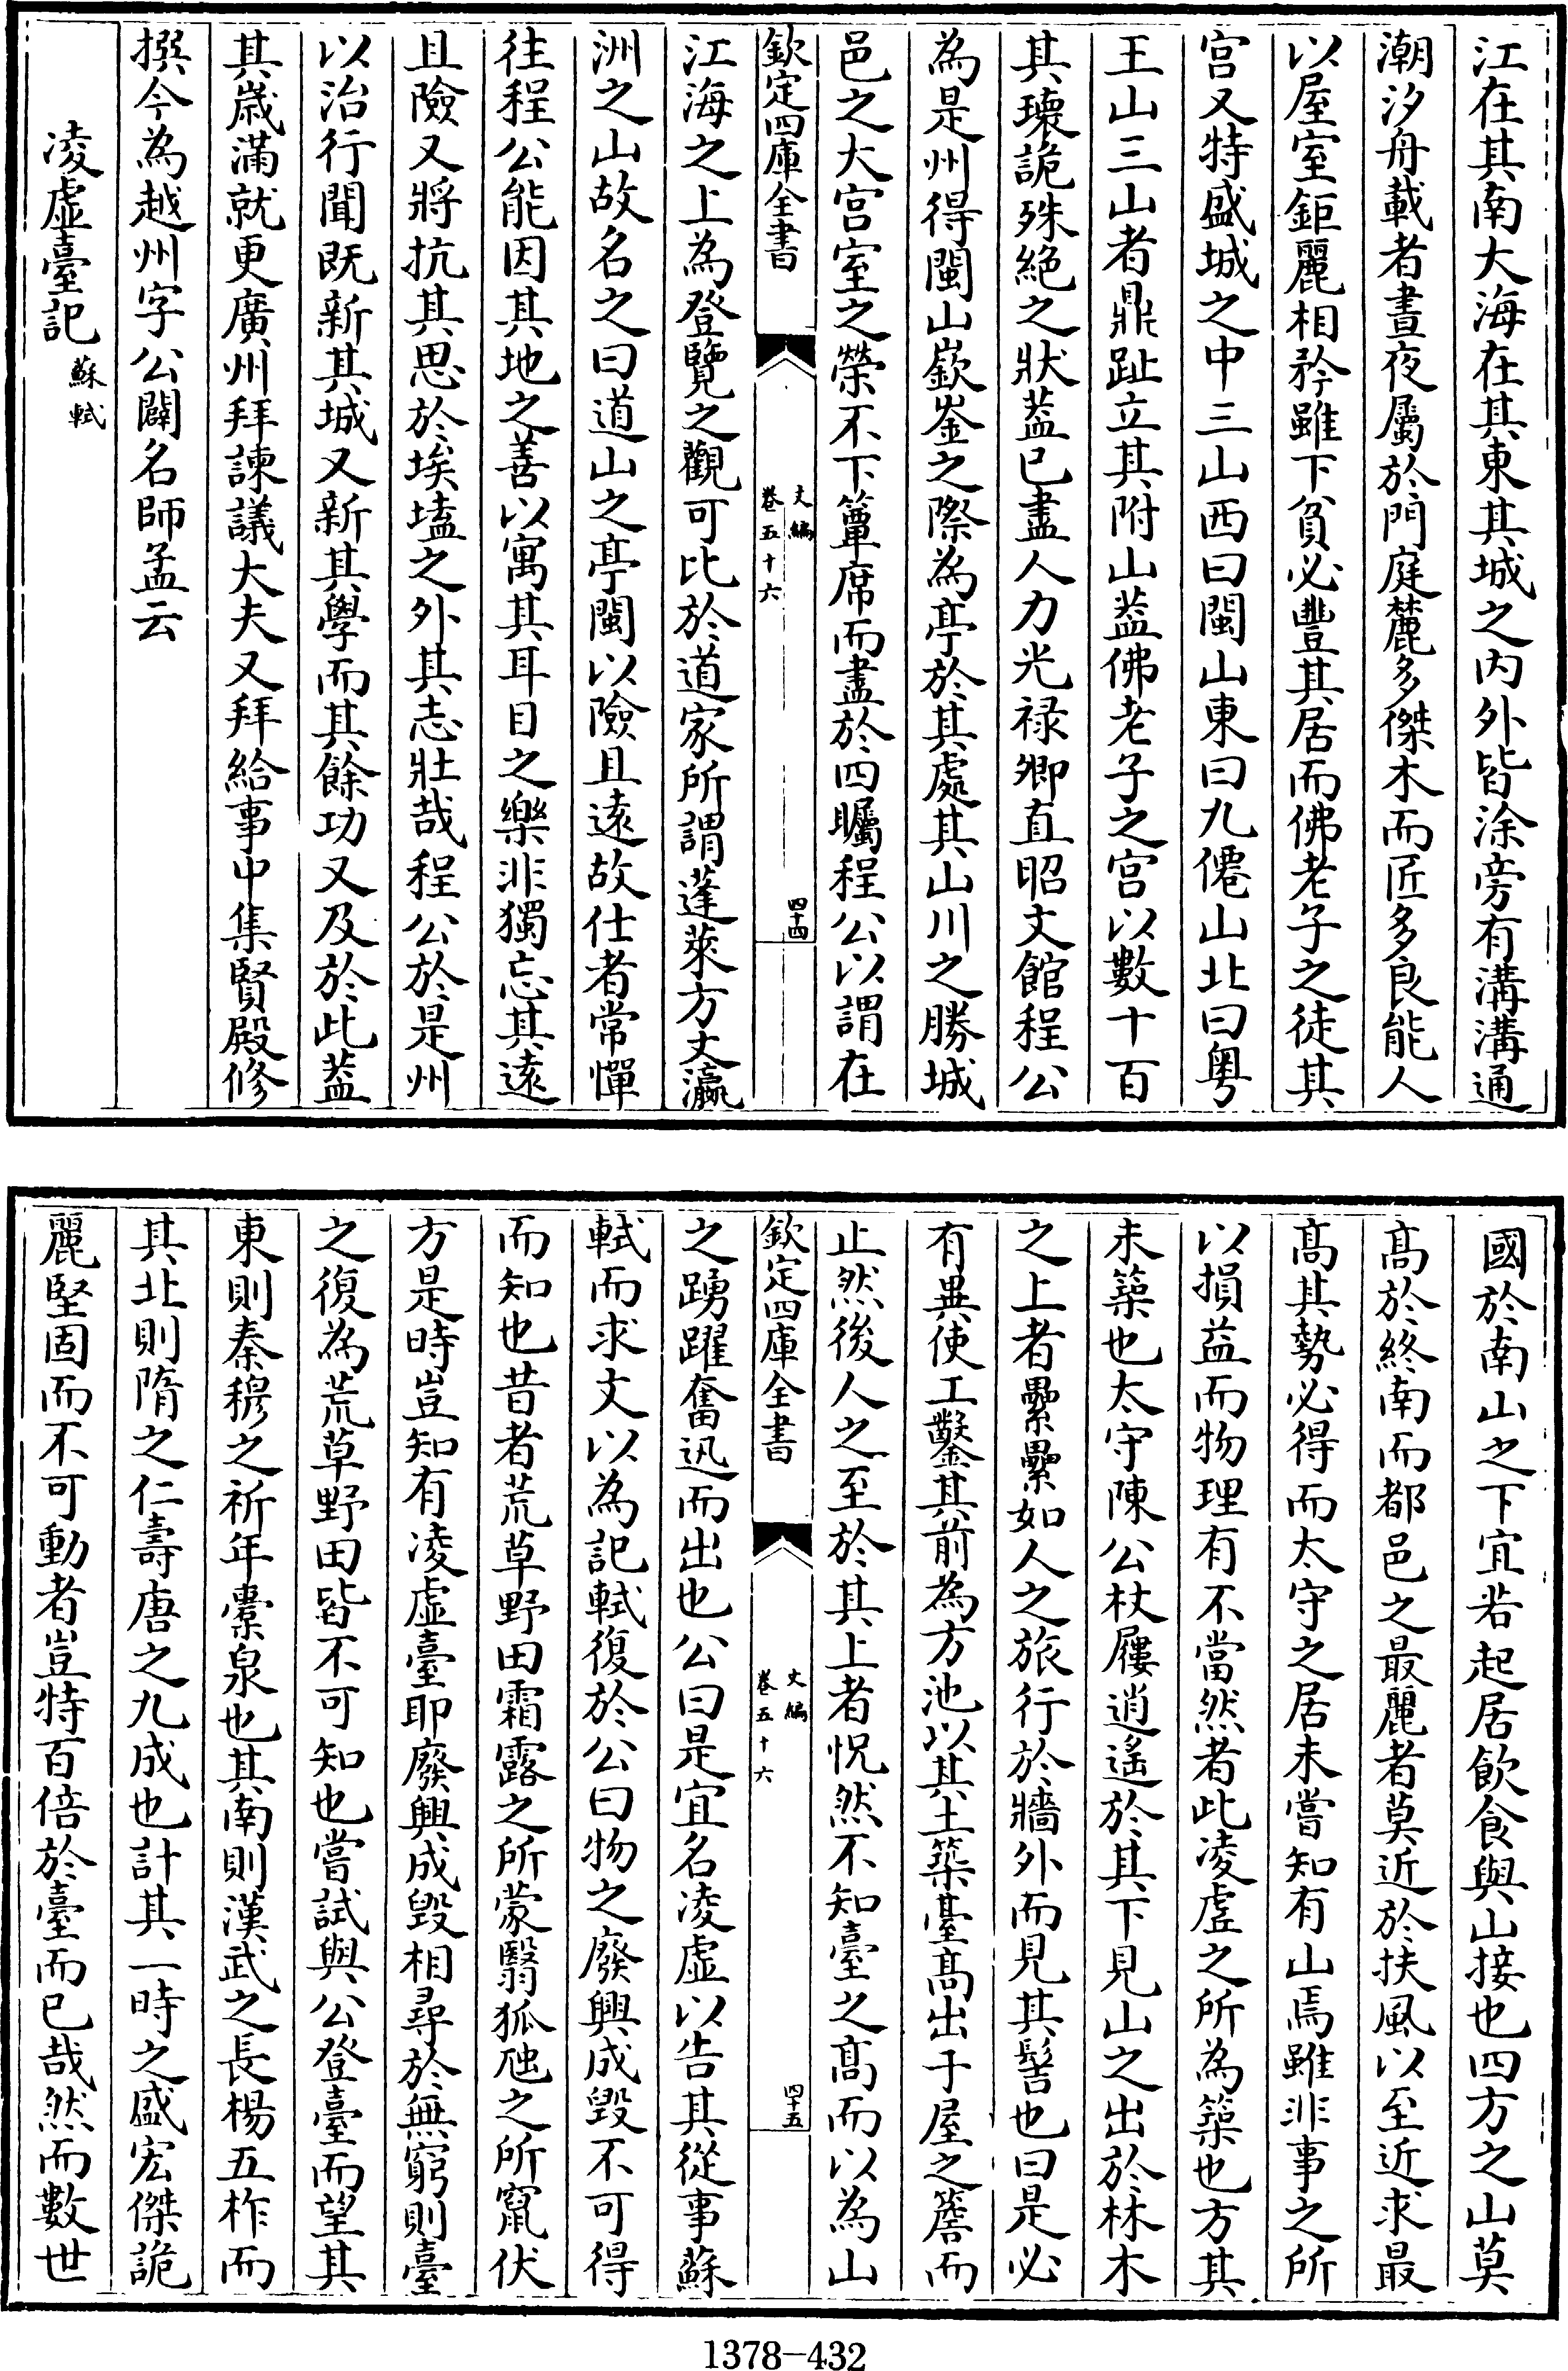 江在其南大海在其東其城之内外皆涂旁有溝溝通
潮汐舟載者晝夜屬於門庭麓多傑木而匠多良能人
以屋室鉅麗相矜雖下貧必豐其居而佛老子之徒其
宫又特盛城之中三山西曰閩山東曰九僊山北曰粤
王山三山者鼎趾立其附山葢佛老子之宫以數十百
其瓌詭殊絶之狀葢已盡人力光禄卿直昭文館程公
為是州得閩山嶔崟之際為亭於其處其山川之勝城
邑之大宫室之榮不下簟席而盡於四矚程公以謂在
欽定四庫全書
文編
卷五十六
四十四
江海之上為登覽之觀可比於道家所謂蓬萊方丈瀛
洲之山故名之曰道山之亭閩以險且逺故仕者常憚
往程公能因其地之善以寓其耳目之樂非獨忘其逺
且險又將抗其思於埃壒之外其志壯哉程公於是州
以治行聞既新其城又新其學而其餘功又及於此葢
其嵗滿就更廣州拜諫議大夫又拜給事中集賢殿修
撰今為越州字公闢名師孟云
凌虚臺記 蘇軾
國於南山之下宜若起居飲食與山接也四方之山莫
髙於終南而都邑之最麗者莫近於扶風以至近求最
髙其勢必得而太守之居未嘗知有山焉雖非事之所
以損益而物理有不當然者此凌虚之所為築也方其
未築也太守陳公杖屨逍遥於其下見山之出於林木
之上者纍纍如人之旅行於牆外而見其髻也曰是必
有異使工鑿其前為方池以其土築臺髙出于屋之簷而
止然後人之至於其上者怳然不知臺之髙而以為山
欽定四庫全書
文編
卷五十六
四十五
之踴躍奮迅而出也公曰是宜名凌虚以告其從事蘇
軾而求文以為記軾復於公曰物之廢興成毁不可得
而知也昔者荒草野田霜露之所蒙翳狐虺之所竄伏
方是時豈知有凌虚臺耶廢興成毁相尋於無窮則臺
之復為荒草野田皆不可知也嘗試與公登臺而望其
東則秦穆之祈年橐泉也其南則漢武之長楊五柞而
其北則隋之仁壽唐之九成也計其一時之盛宏傑詭
麗堅固而不可動者豈特百倍於臺而已哉然而數世
1378-432